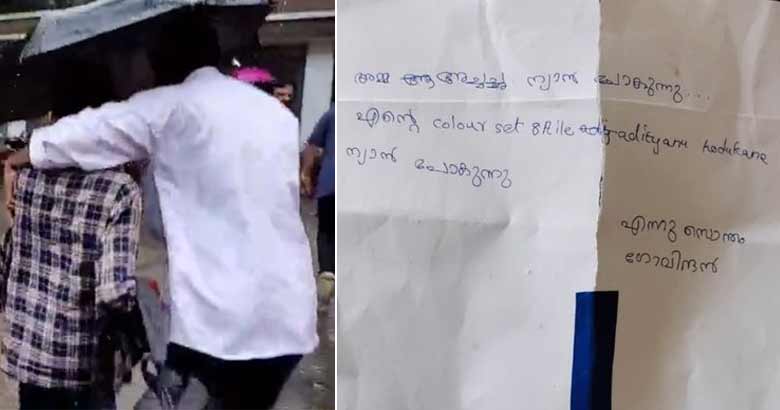 അമ്മ ന്യാൻ പോകുന്നു...
എന്റെ colour set 8Aile adityanu kodukane
ന്യാൻ പോകുന്നു
എന്നു സൊന്തം
ഗോവിന്ദൻ